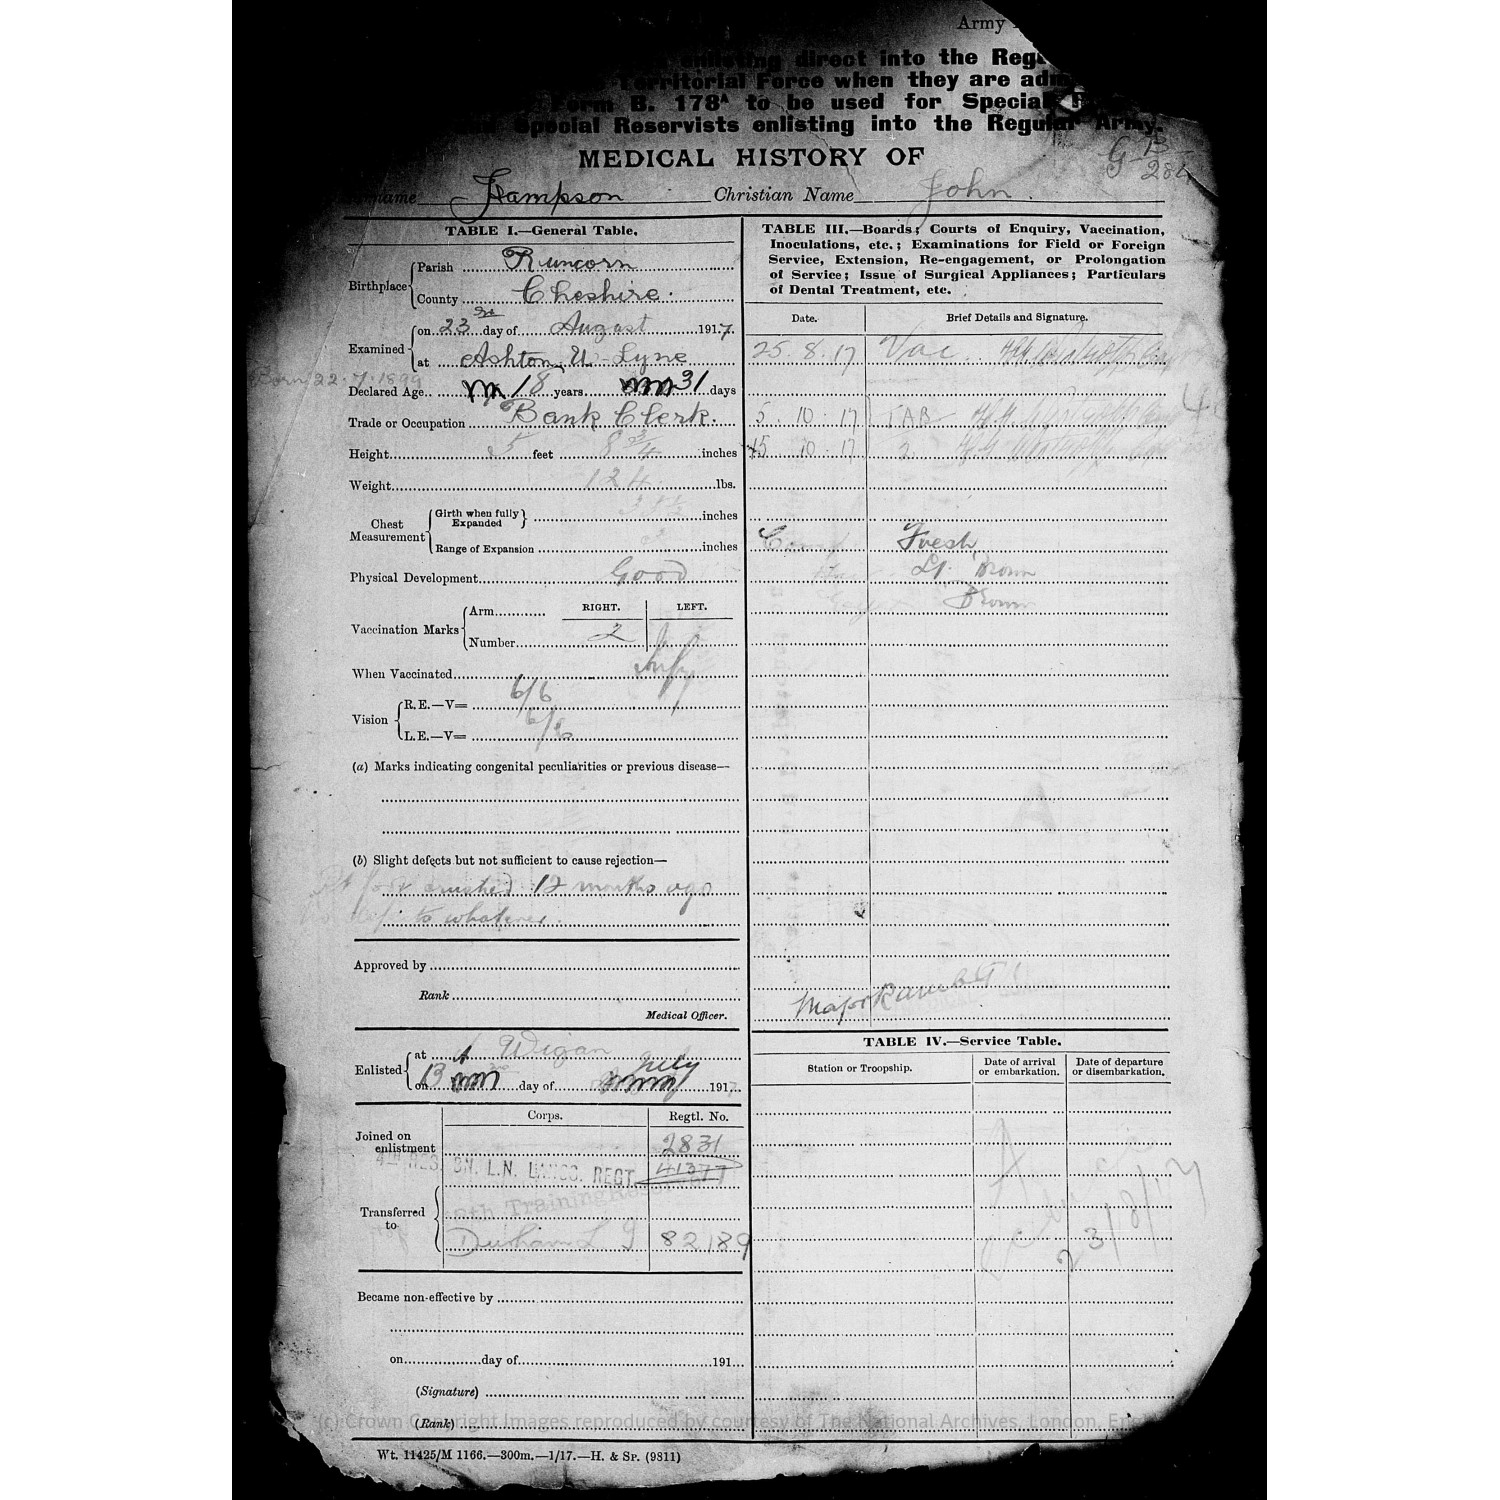 Army
enlisting direct into the Reg
Territorial Force when they are adm
Form B. 178A to be used for Special
Special Reservists enlisting into the Regular Army.
MEDICAL HISTORY OF
G B 284
name Hampson Christian Name John.
TABLE I.—General Table.
Birthplace
Parish Runcorn
County Cheshire.
Examined
on 23rd day of August 1917.
at Ashton U. Lyne
Born 22.7.1899
Declared Age 18 years 31 days
Trade or Occupation Bank Clerk.
Height 5 feet 8 3/4 inches
Weight 124 lbs.
Chest Measurement
Girth when fully Expanded 33 1/2 inches
Range of Expansion inches
Physical Development Good
Vaccination Marks
RIGHT. LEFT.
Arm
Number 2
When Vaccinated Infy
Vision
R.E.—V= 6/6
L.E.—V= 6/6
(a) Marks indicating congenital peculiarities or previous disease—
(b) Slight defects but not sufficient to cause rejection—
crushed 12 months ago
defects whatever.
Approved by
Rank
Medical Officer.
Enlisted
at Wigan
on 13 day of July 1917
Corps. Regtl. No.
Joined on enlistment 2831
4TH RES. BN. L.N. LANCS. REGT. 41377
Training Reserve
Transferred to
Durham L I 82189
Became non-effective by
on day of 191
(Signature)
(Rank)
TABLE III.—Boards; Courts of Enquiry, Vaccination,
Inoculations, etc.; Examinations for Field or Foreign
Service, Extension, Re-engagement, or Prolongation
of Service; Issue of Surgical Appliances; Particulars
of Dental Treatment, etc.
Date. Brief Details and Signature.
25.8.17 Vac
5.10.17 TAB
15.10.17 2
Fresh
Lt. Brown
Brown
Major RAMC
TABLE IV.—Service Table.
Station or Troopship. Date of arrival or embarkation. Date of departure or disembarkation.
(c) Crown Copyright Images reproduced by courtesy of The National Archives, London, Eng
Wt. 11425/M 1166.—300m.—1/17.—H. & Sp. (9811)